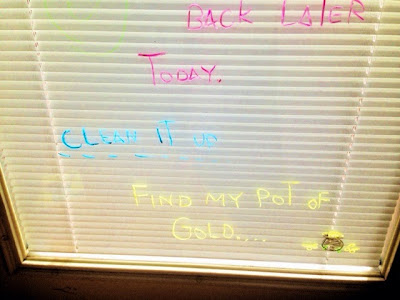 BACK LATER
TODAY.
CLEAN IT UP
FIND MY POT OF
GOLD....